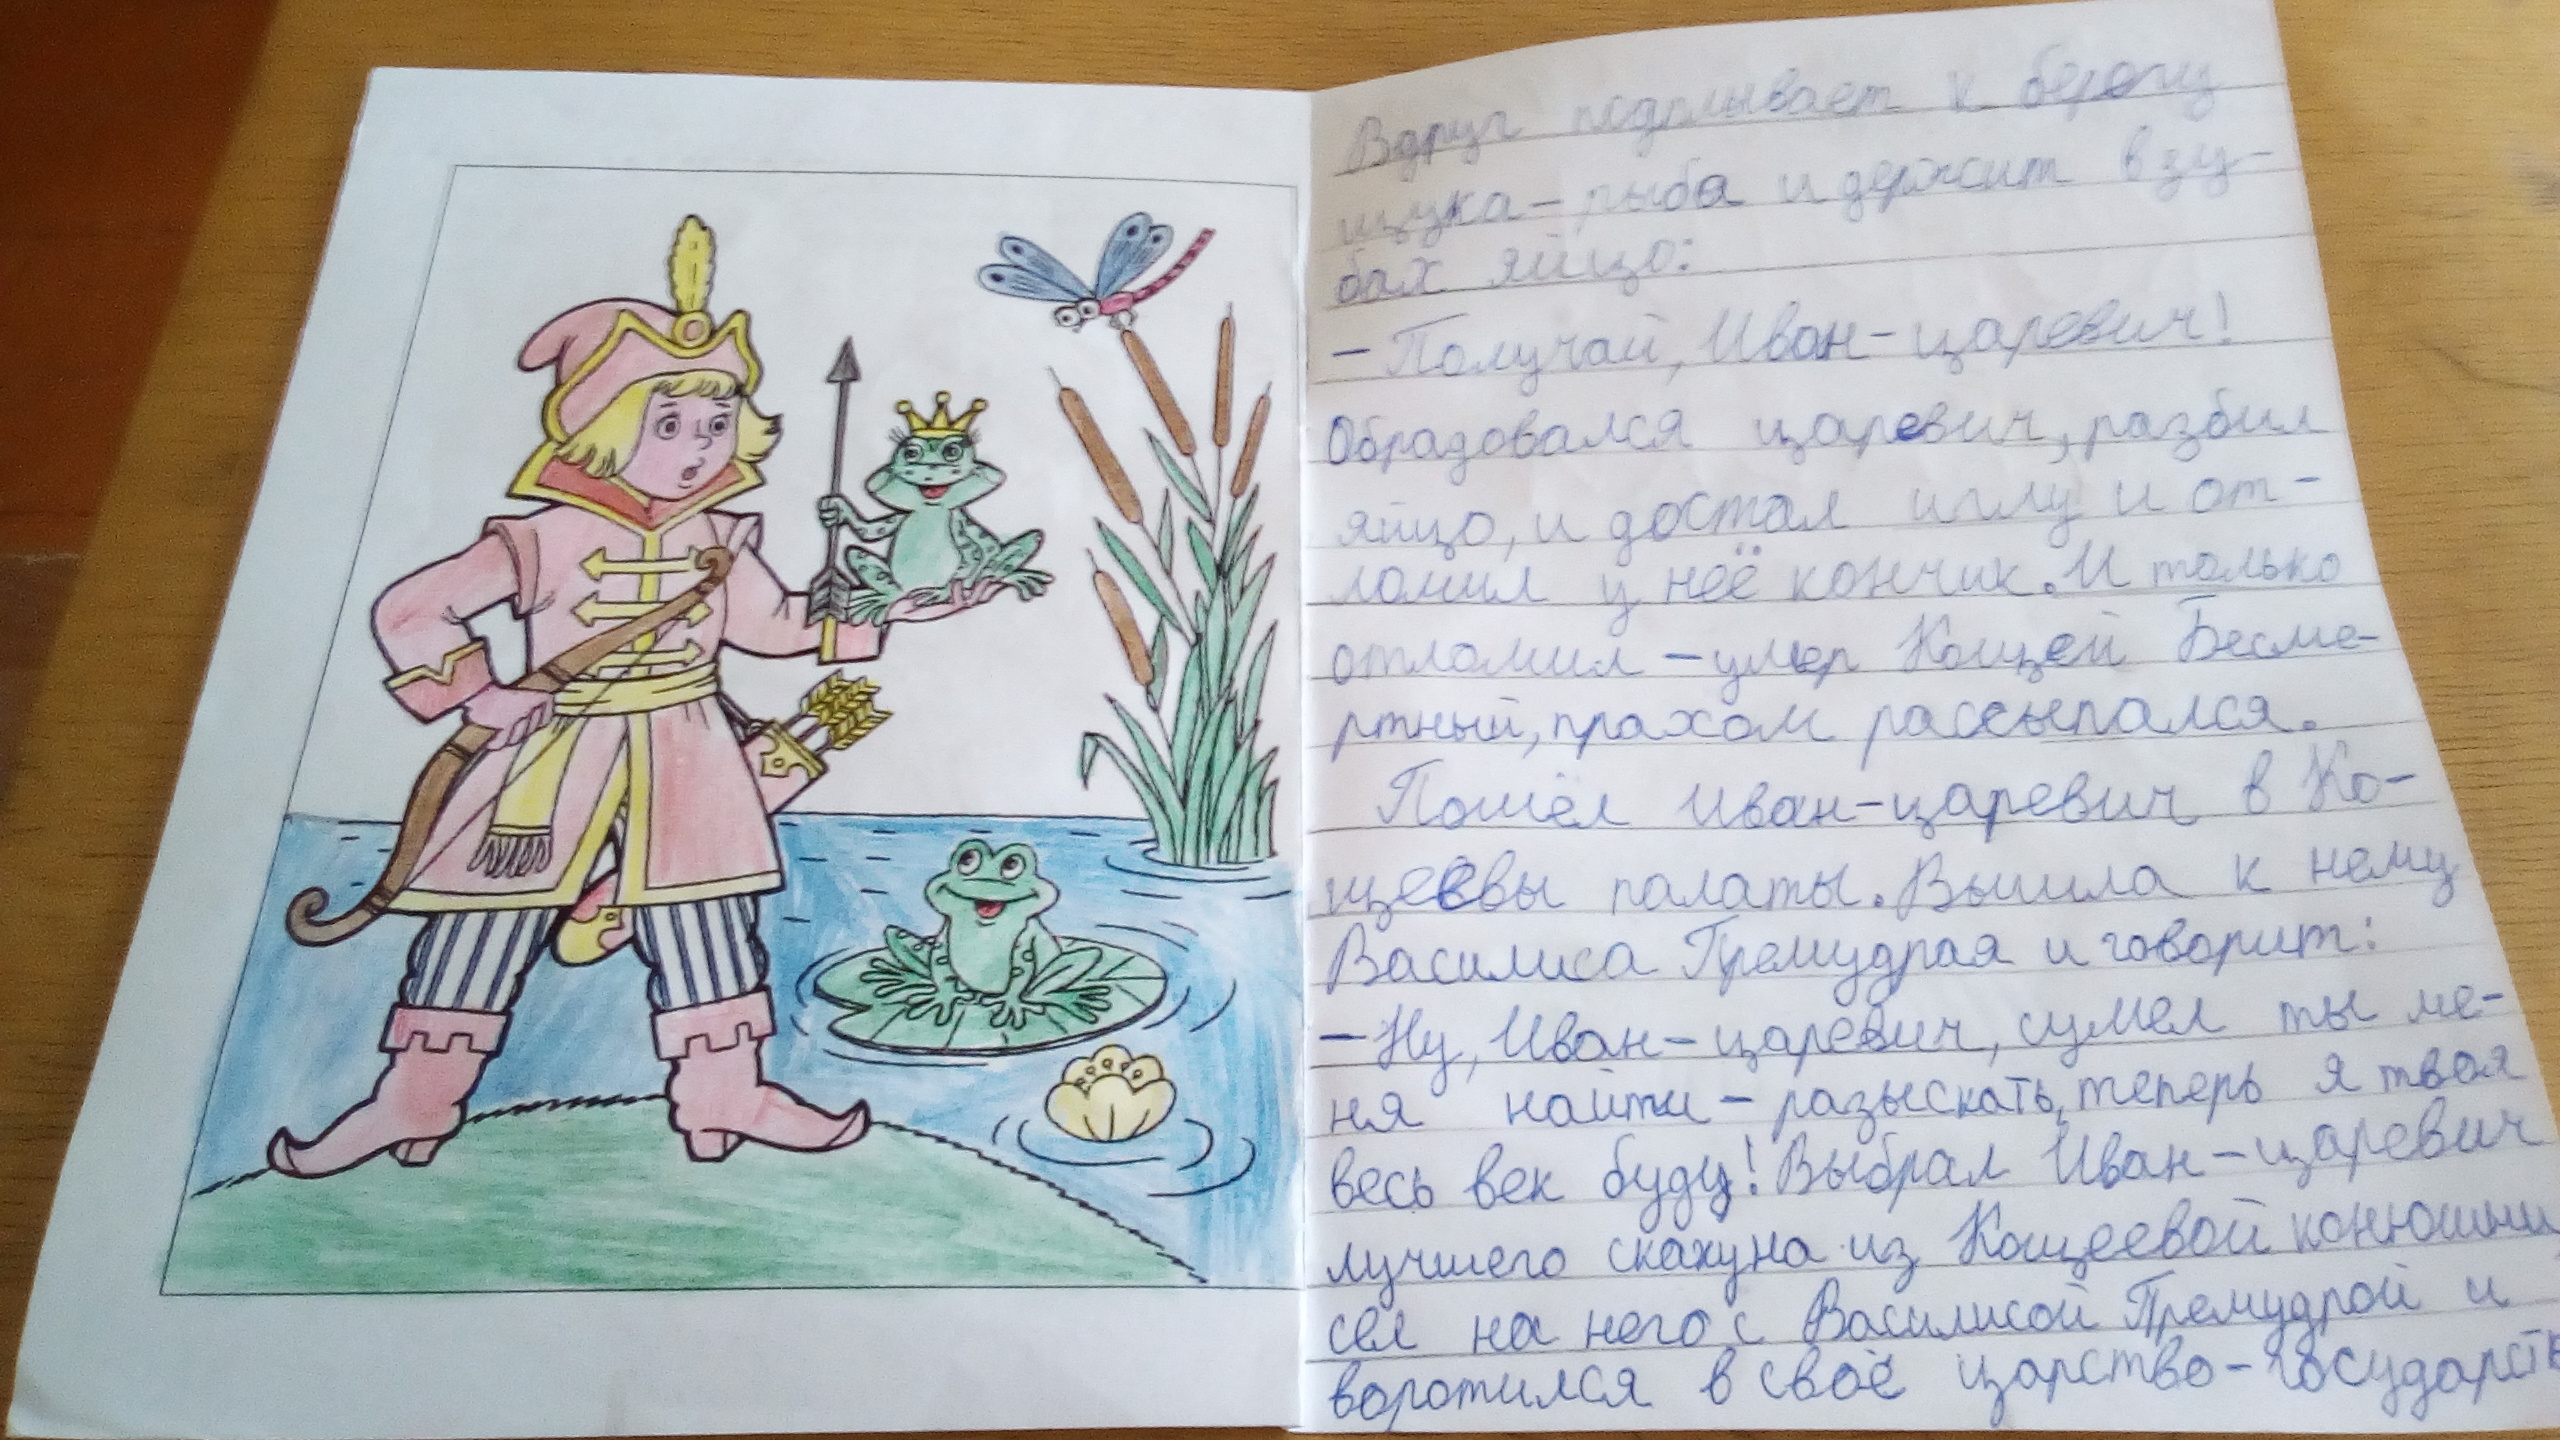 Вдруг подплывает к берегу
щука-рыба и держит в зу-
бах яйцо:
- Получай, Иван-царевич!
Обрадовался царевич, разбил
яйцо, и достал иглу и от-
ломил у неё кончик. И только
отломил - умер Кощей Бесме-
ртный, прахом рассыпался.
Пошёл Иван-царевич в Ко-
щеевы палаты. Вышла к нему
Василиса Премудрая и говорит:
- Ну, Иван-царевич, сумел ты ме-
ня найти - разыскать, теперь я твоя
весь век буду! Выбрал Иван-царевич
лучшего скакуна из Кощеевой конюшни,
сел на него с Василисой Премудрой и
воротился в своё царство-государств